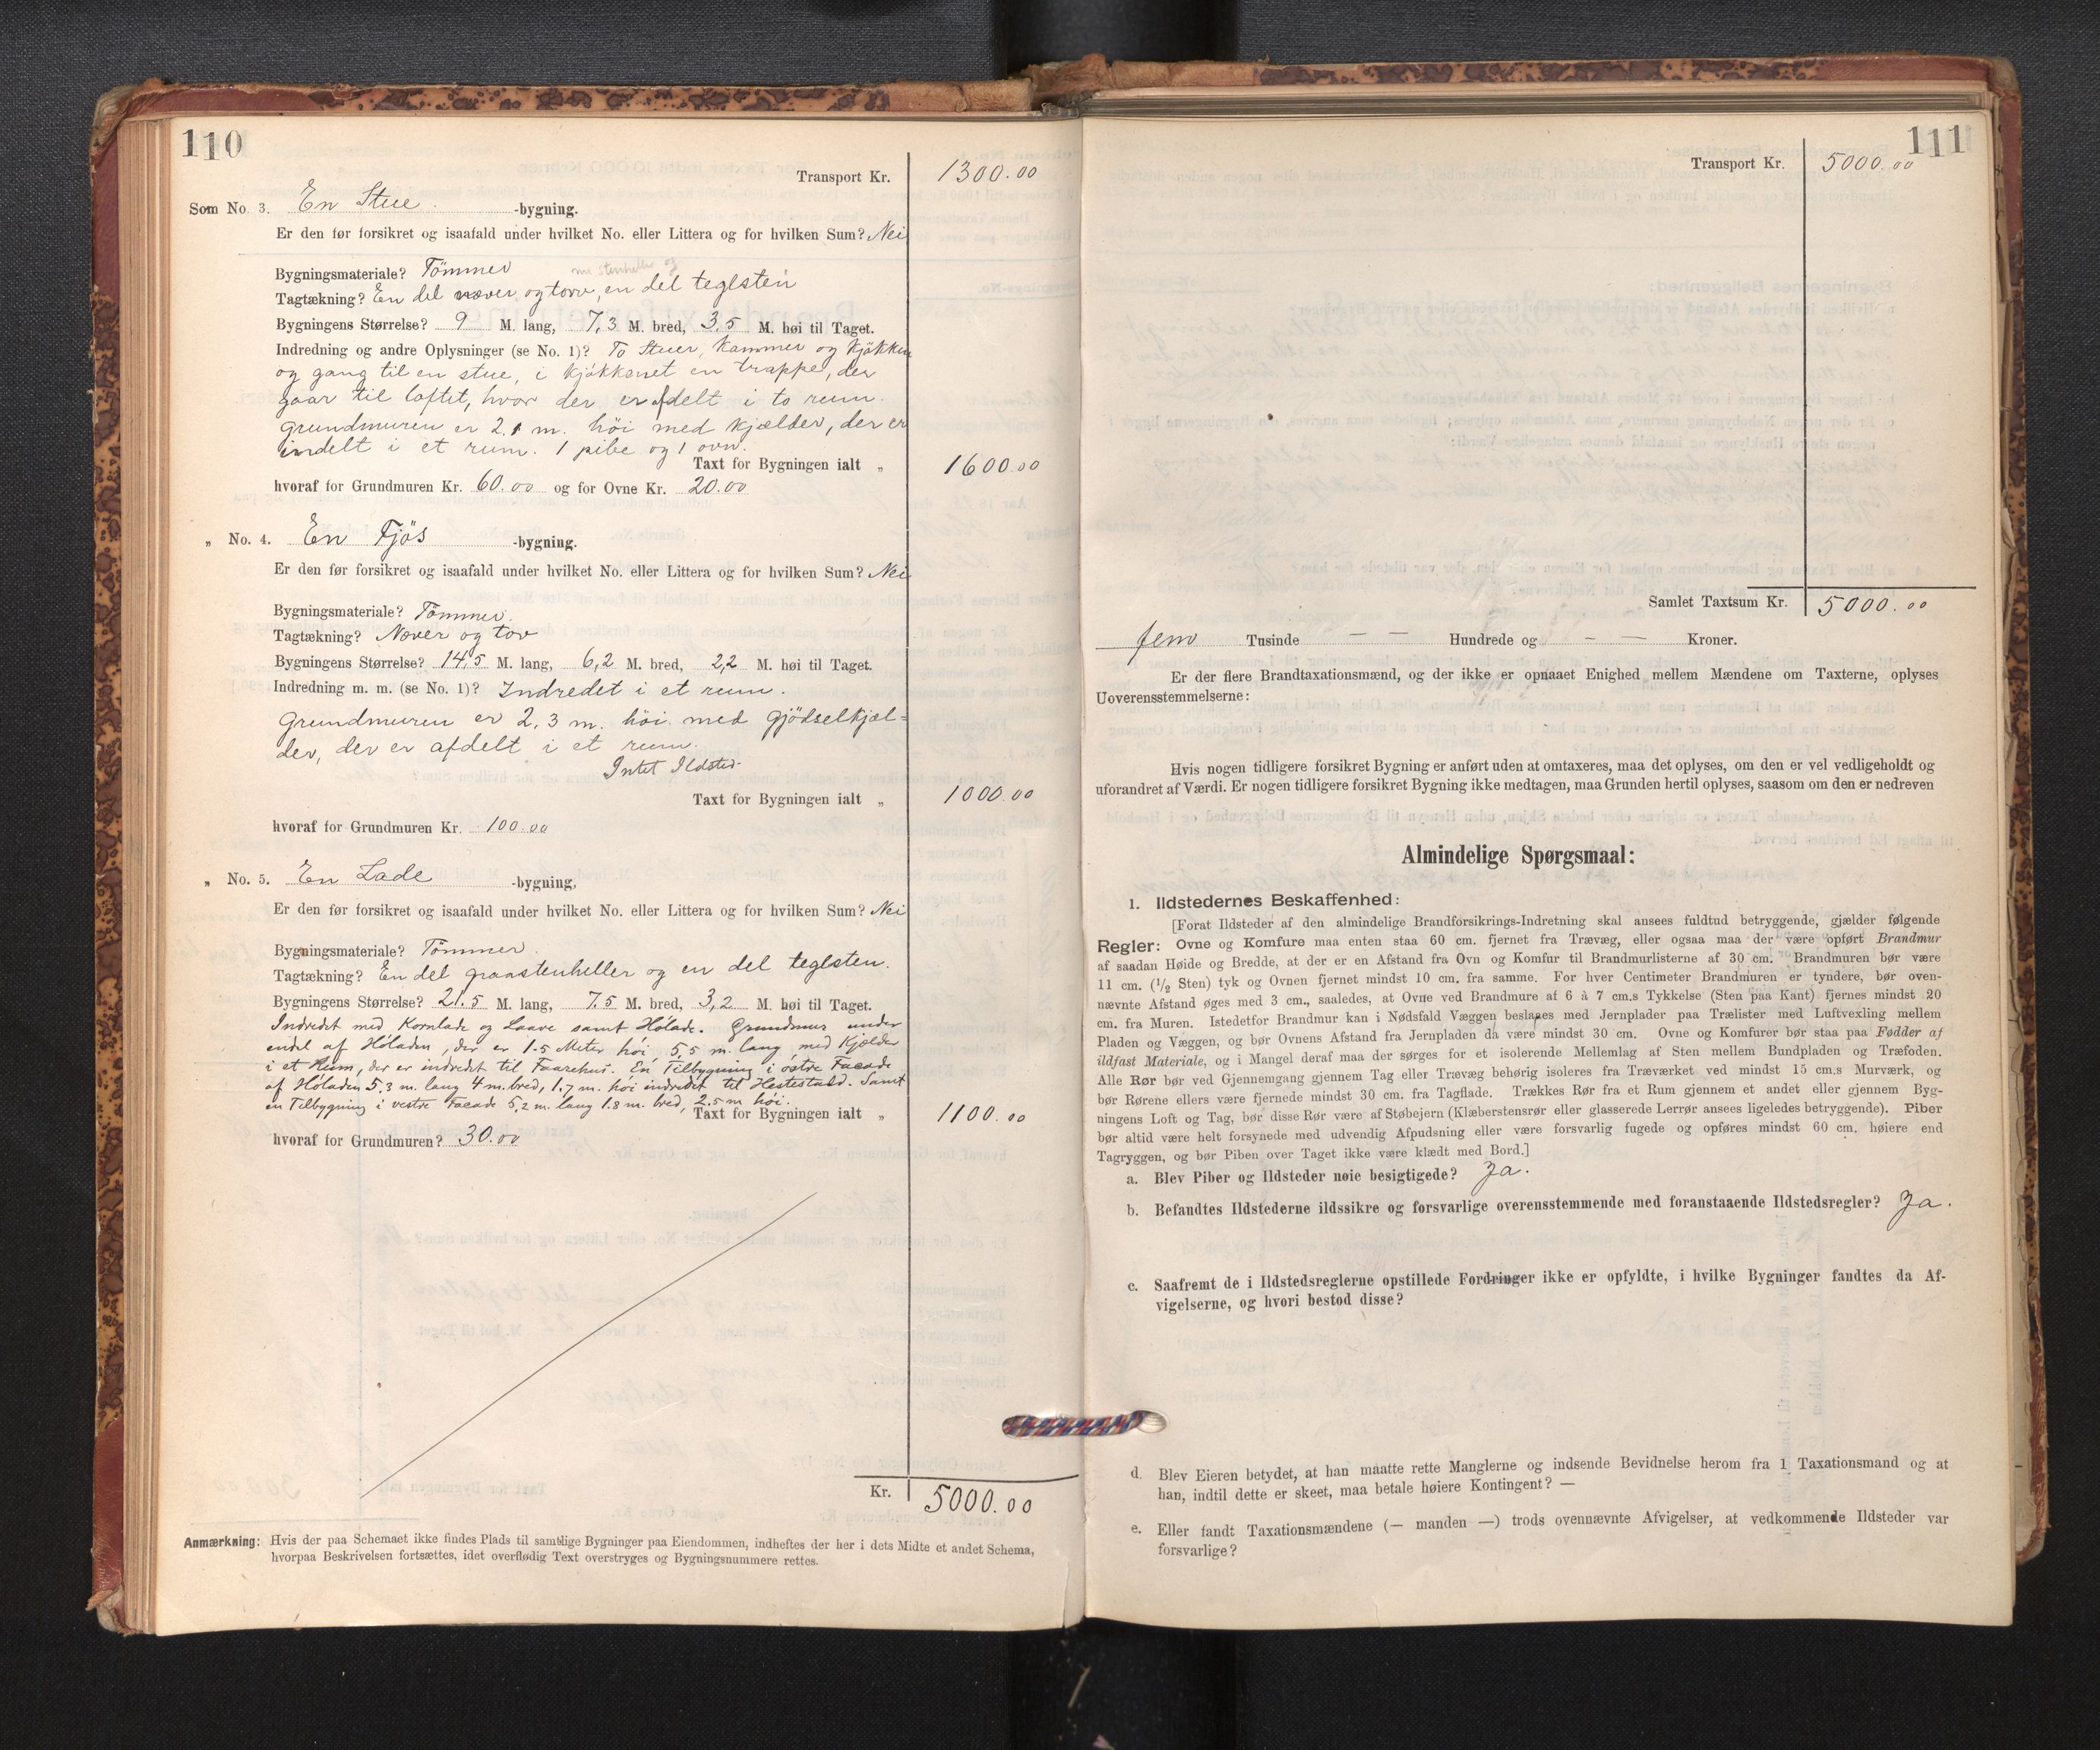 110
Transport Kr. 1300.00
Som No. 3. En Stue. -bygning.
Er den før forsikret og isaafald under hvilket No. eller Littera og for hvilken Sum? Nei
Bygningsmateriale? Tömmer
Tagtækning? En del næver og torv, en del teglsten
Bygningens Størrelse? 9 M. lang, 7,3 M. bred, 3,5 M. høi til Taget.
Indredning og andre Oplysninger (se No. 1)? To Stuer, kammer og kjøkken
og gang til en stue, i kjøkkenet en trappe, der
gaar til loftet, hvor der er afdelt i to rum.
Grundmuren er 2,1 m. höi med kjælder, der er
indelt i et rum. 1 pibe og 1 ovn.
Taxt for Bygningen ialt „ 1600.00
hvoraf for Grundmuren Kr. 60.00 og for Ovne Kr. 20.00
„ No. 4. En Fjös -bygning.
Er den før forsikret og isaafald under hvilket No. eller Littera og for hvilken Sum? Nei
Bygningsmateriale? Tömmer.
Tagtækning? Næver og tov
Bygningens Størrelse? 14,5 M. lang, 6,2 M. bred, 2,2 M. høi til Taget.
Indredning m. m. (se No. 1)? Indredet i et rum.
Grundmuren er 2,3 m. höi med gjödselkjæl-
der, der er afdelt i et rum.
Intet Ildsted.
Taxt for Bygningen ialt „ 1000.00
hvoraf for Grundmuren Kr. 100.00
„ No. 5. En Lade -bygning,
Er den før forsikret og isaafald under hvilket No. eller Littera og for hvilken Sum? Nei
Bygningsmateriale? Tömmer.
Tagtækning? En del graastenheller og en del teglsten.
Bygningens Størrelse? 21.5 M. lang, 7.5 M. bred, 3,2 M. høi til Taget.
Indredet med Kornlade og Laave samt Hölade. Grundmur under
endel af Höladen, der er 1.5 Meter höi, 5,5 m. lang med Kjælder
i et Rum, der er indredet til Faarehus. En Tilbygning i östre Facade
af Höladen 5,3 m. lang 4 m. bred, 1,7 m. höi indredet til Hestestald. Samt
en Tilbygning i vestre Facade 5,2 m. lang 1.8 m. bred, 2.5 m höi.
Taxt for Bygningen ialt „ 1100.00
hvoraf for Grundmuren? 30.00
Kr. 5000.00
Anmærkning: Hvis der paa Schemaet ikke findes Plads til samtlige Bygninger paa Eiendommen, indheftes der her i dets Midte et andet Schema,
hvorpaa Beskrivelsen fortsættes, idet overflødig Text overstryges og Bygningsnummere rettes.
111
Transport Kr. 5000.00
Samlet Taxtsum Kr. 5000.00
fem Tusinde — — Hundrede og — — Kroner.
Er der flere Brandtaxationsmænd, og der ikke er opnaaet Enighed mellem Mændene om Taxterne, oplyses
Uoverensstemmelserne:
Hvis nogen tidligere forsikret Bygning er anført uden at omtaxeres, maa det oplyses, om den er vel vedligeholdt og
uforandret af Værdi. Er nogen tidligere forsikret Bygning ikke medtagen, maa Grunden hertil oplyses, saasom om den er nedreven
Almindelige Spørgsmaal:
1. Ildstedernes Beskaffenhed:
[Forat Ildsteder af den almindelige Brandforsikrings-Indretning skal ansees fuldtud betryggende, gjælder følgende
Regler: Ovne og Komfure maa enten staa 60 cm. fjernet fra Trævæg, eller ogsaa maa der være opført Brandmur
af saadan Høide og Bredde, at der er en Afstand fra Ovn og Komfur til Brandmurlisterne af 30 cm. Brandmuren bør være
11 cm. (1/2 Sten) tyk og Ovnen fjernet mindst 10 cm. fra samme. For hver Centimeter Brandmuren er tyndere, bør oven-
nævnte Afstand øges med 3 cm., saaledes, at Ovne ved Brandmure af 6 à 7 cm.s Tykkelse (Sten paa Kant) fjernes mindst 20
cm. fra Muren. Istedetfor Brandmur kan i Nødsfald Væggen beslaaes med Jernplader paa Trælister med Luftvexling mellem
Pladen og Væggen, og bør Ovnens Afstand fra Jernpladen da være mindst 30 cm. Ovne og Komfurer bør staa paa Fødder af
ildfast Materiale, og i Mangel deraf maa der sørges for et isolerende Mellemlag af Sten mellem Bundpladen og Træfoden.
Alle Rør bør ved Gjennemgang gjennem Tag eller Trævæg behørig isoleres fra Træværket ved mindst 15 cm.s Murværk, og
bør Rørene ellers være fjernede mindst 30 cm. fra Tagflade. Trækkes Rør fra et Rum gjennem et andet eller gjennem Byg-
ningens Loft og Tag, bør disse Rør være af Støbejern (Klæberstensrør eller glasserede Lerrør ansees ligeledes betryggende). Piber
bør altid være helt forsynede med udvendig Afpudsning eller være forsvarlig fugede og opføres mindst 60 cm. høiere end
Tagryggen, og bør Piben over Taget ikke være klædt med Bord.]
a. Blev Piber og Ildsteder nøie besigtigede? Ja.
b. Befandtes Ildstederne ildssikre og forsvarlige overensstemmende med foranstaaende Ildstedsregler? Ja.
c. Saafremt de i Ildstedsreglerne opstillede Fordringer ikke er opfyldte, i hvilke Bygninger fandtes da Af-
vigelserne, og hvori bestod disse?
d. Blev Eieren betydet, at han maatte rette Manglerne og indsende Bevidnelse herom fra 1 Taxationsmand og at
han, indtil dette er skeet, maa betale høiere Kontingent? —
e. Eller fandt Taxationsmændene (— manden —) trods ovennævnte Afvigelser, at vedkommende Ildsteder var
forsvarlige?